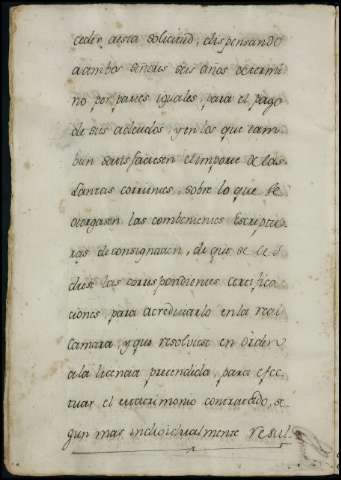 ceder aesta solicitud, dispensando
aambos señores seis años determi
no por partes iguales, para el pago
de sus adeudos, y en los que tam
bien satisfaciesen el importe de las
Lanzas corrientes, sobre lo que se
otorgasen las combenientes Escriptu
ras de consignacion, de que se le
diese las correspondientes certifica
ciones para acreditarlo en la real
Camara, y que resolviese en orden
ala licencia pretendida, para efec
tuar el matrimonio contratado, se
gun mas individualmente resul